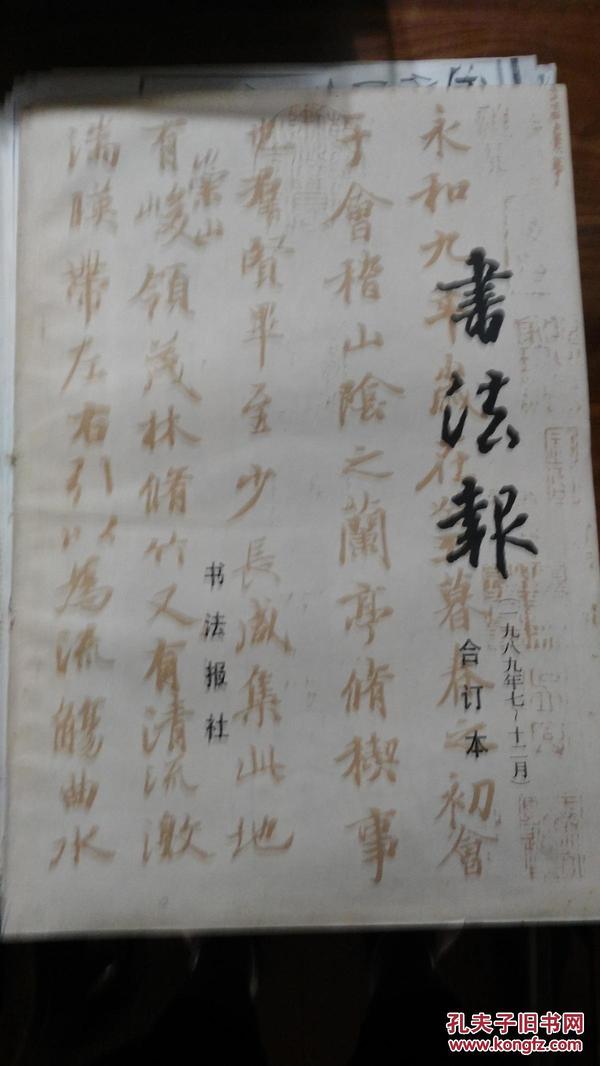 書法報
(一九八九年七~十二月)
合订本
永和九年歲在癸暮春之初會
于會稽山陰之蘭亭脩稧事
也羣賢畢至少長咸集此地
有崇山峻領茂林脩竹又有清流激
湍暎帶左右引以為流觴曲水
书法报社
孔夫子旧书网
www.kongfz.com